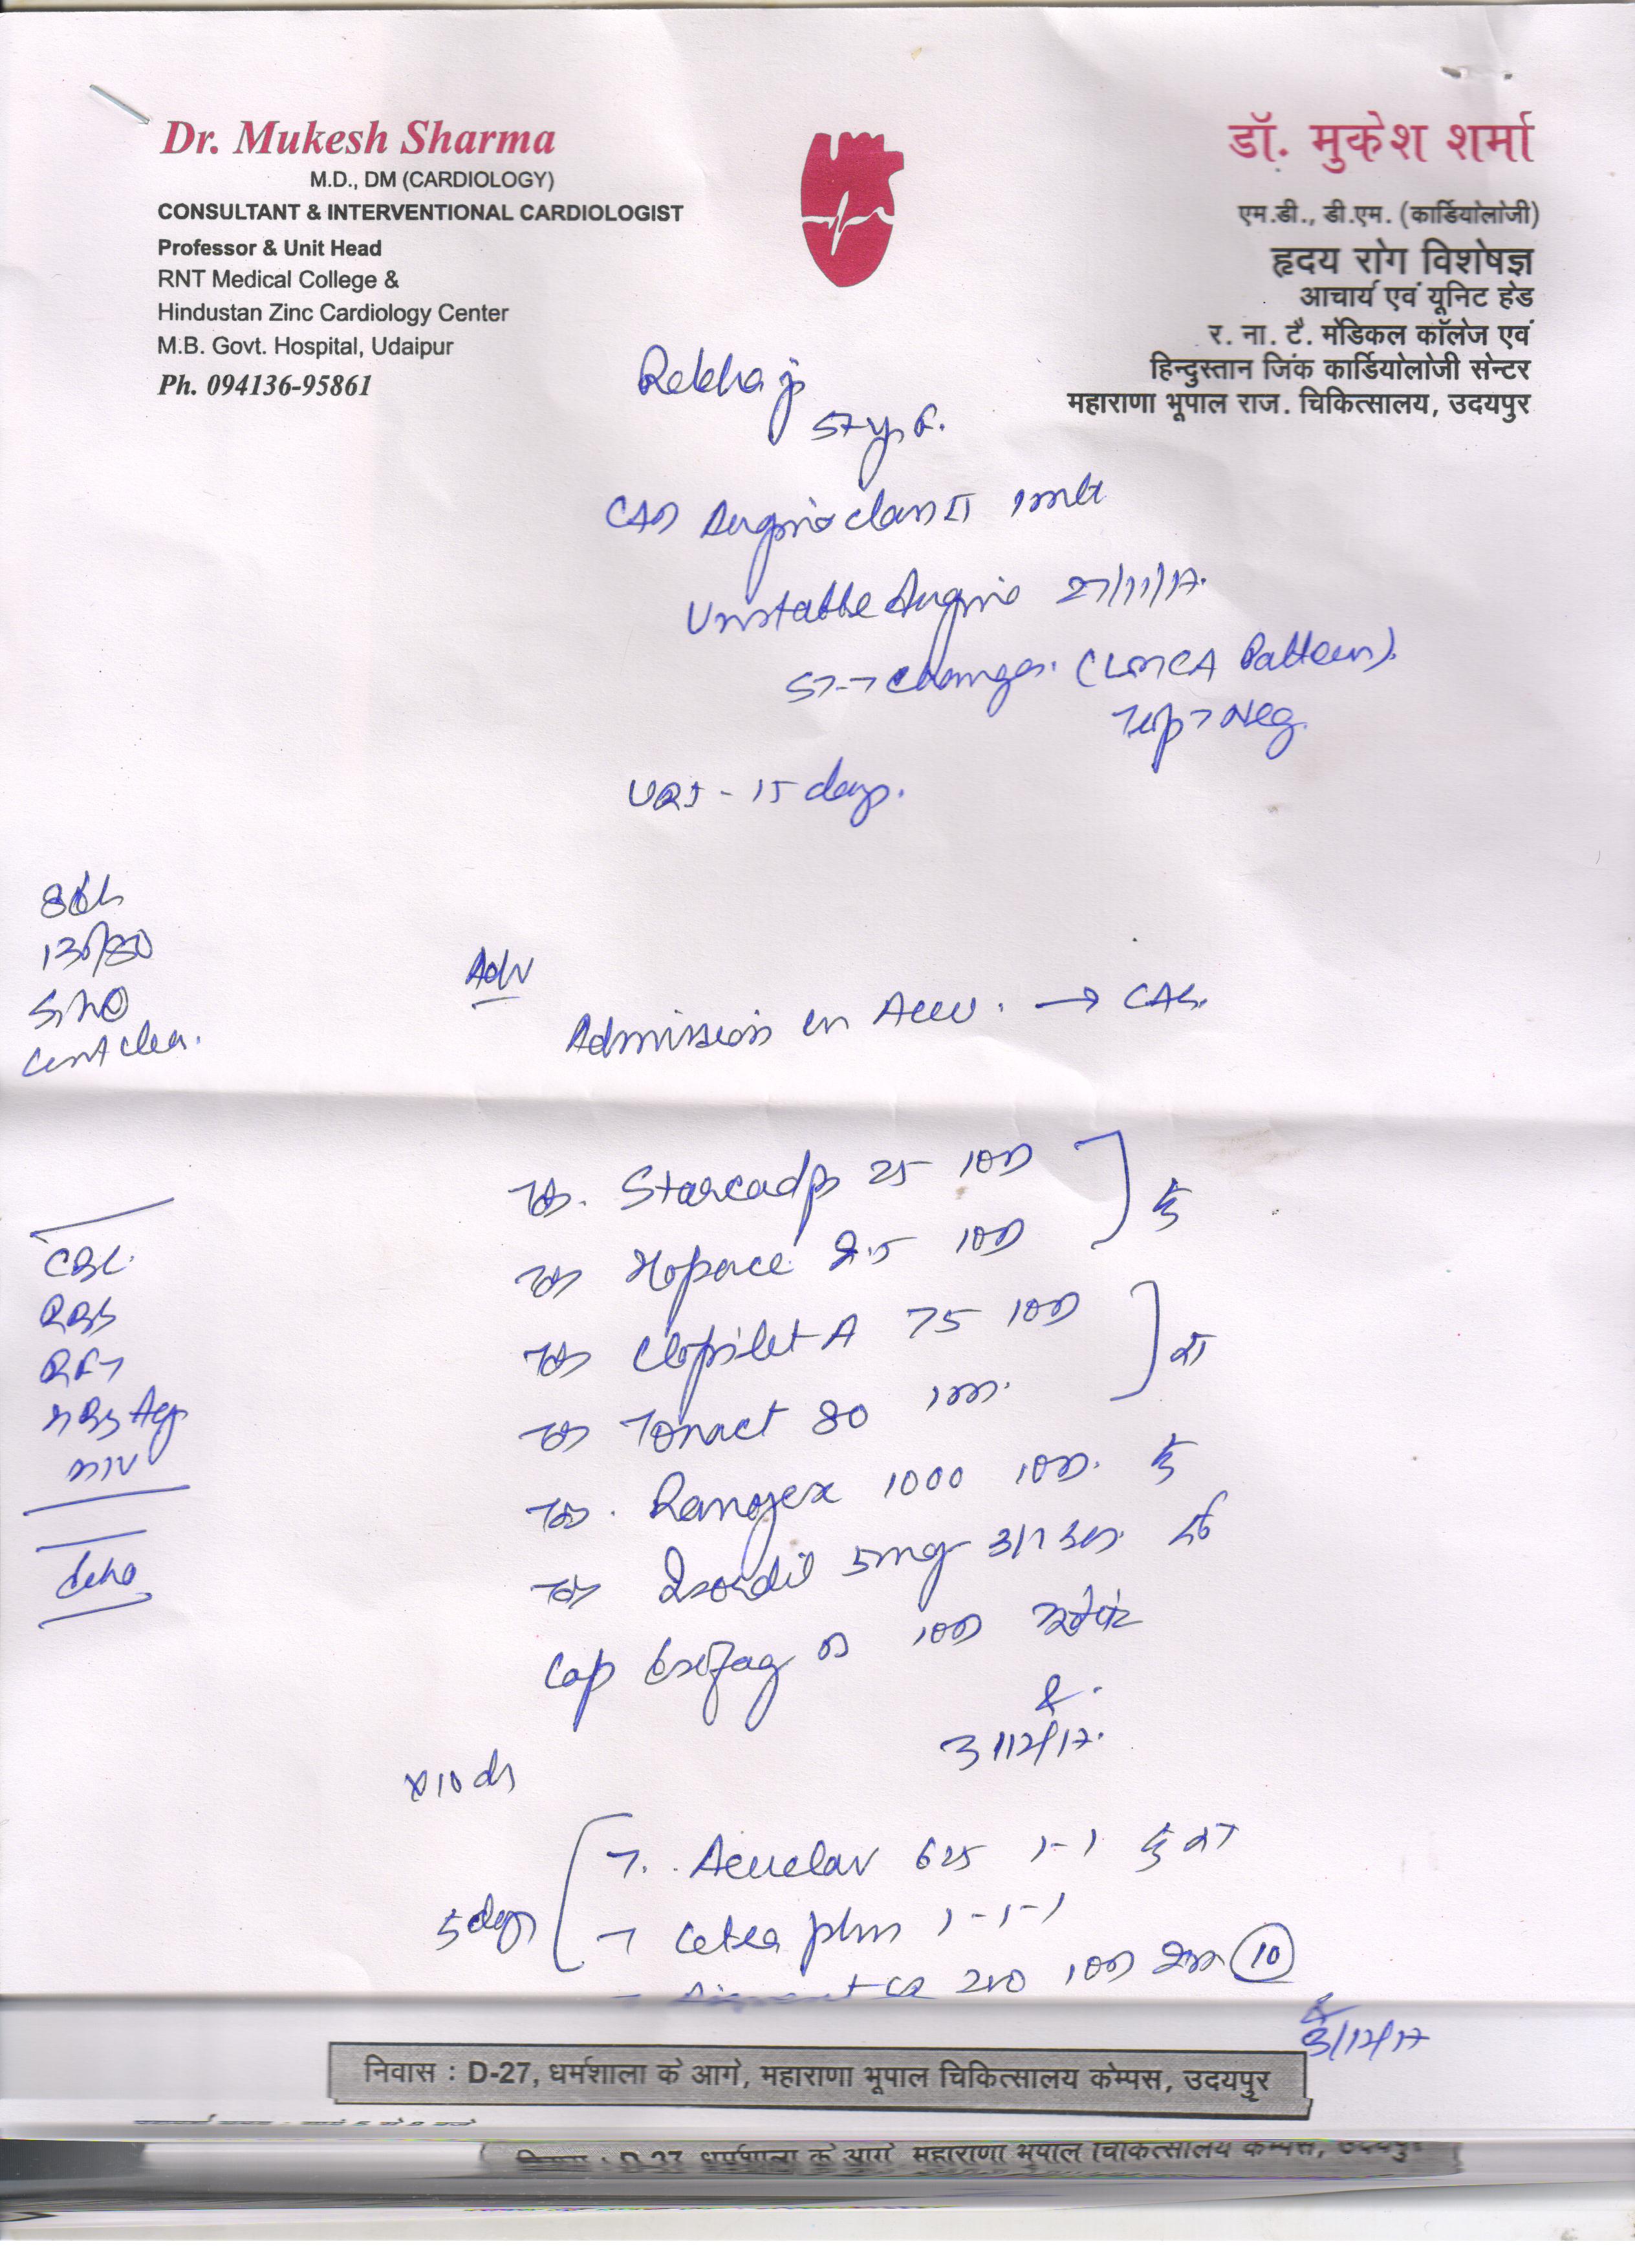 Dr. Mukesh Sharma
M.D., DM (CARDIOLOGY)
CONSULTANT & INTERVENTIONAL CARDIOLOGIST
Professor & Unit Head
RNT Medical College &
Hindustan Zinc Cardiology Center
M.B. Govt. Hospital, Udaipur
Ph. 094136-95861
डॉ. मुकेश शर्मा
एम.डी., डी.एम. (कार्डियोलॉजी)
हृदय रोग विशेषज्ञ
आचार्य एवं यूनिट हेड
र. ना. टै. मेडिकल कॉलेज एवं
हिन्दुस्तान जिंक कार्डियोलोजी सेन्टर
महाराणा भूपाल राज. चिकित्सालय, उदयपुर
Rekha ji
57 y F.
CAD Angina class II
Unstable Angina 27/11/17.
ST-T changes. (LMCA Pattern).
Trop > Neg.
URI - 15 days.
130/80
Adv
Admission in → CAG.
CBC
RBS
RFT
HBsAg
HIV
Echo
Tab. Starcad 25 1OD
Tab Hopace 2.5 1OD
Tab Clopilet A 75 1OD
Tab Tonact 80
Tab. Ranozex 1000
Tab Isordil 5mg
Cap D 1OD
3/12/17.
x 10 d
5 days
T. Acuclav 625 1-1
T plus 1-1-1
CR 1OD 10
3/12/17
निवास : D-27, धर्मशाला के आगे, महाराणा भूपाल चिकित्सालय केम्पस, उदयपुर
D-27 धर्मशाला के आगे महाराणा भूपाल चिकित्सालय केम्पस, उदयपुर